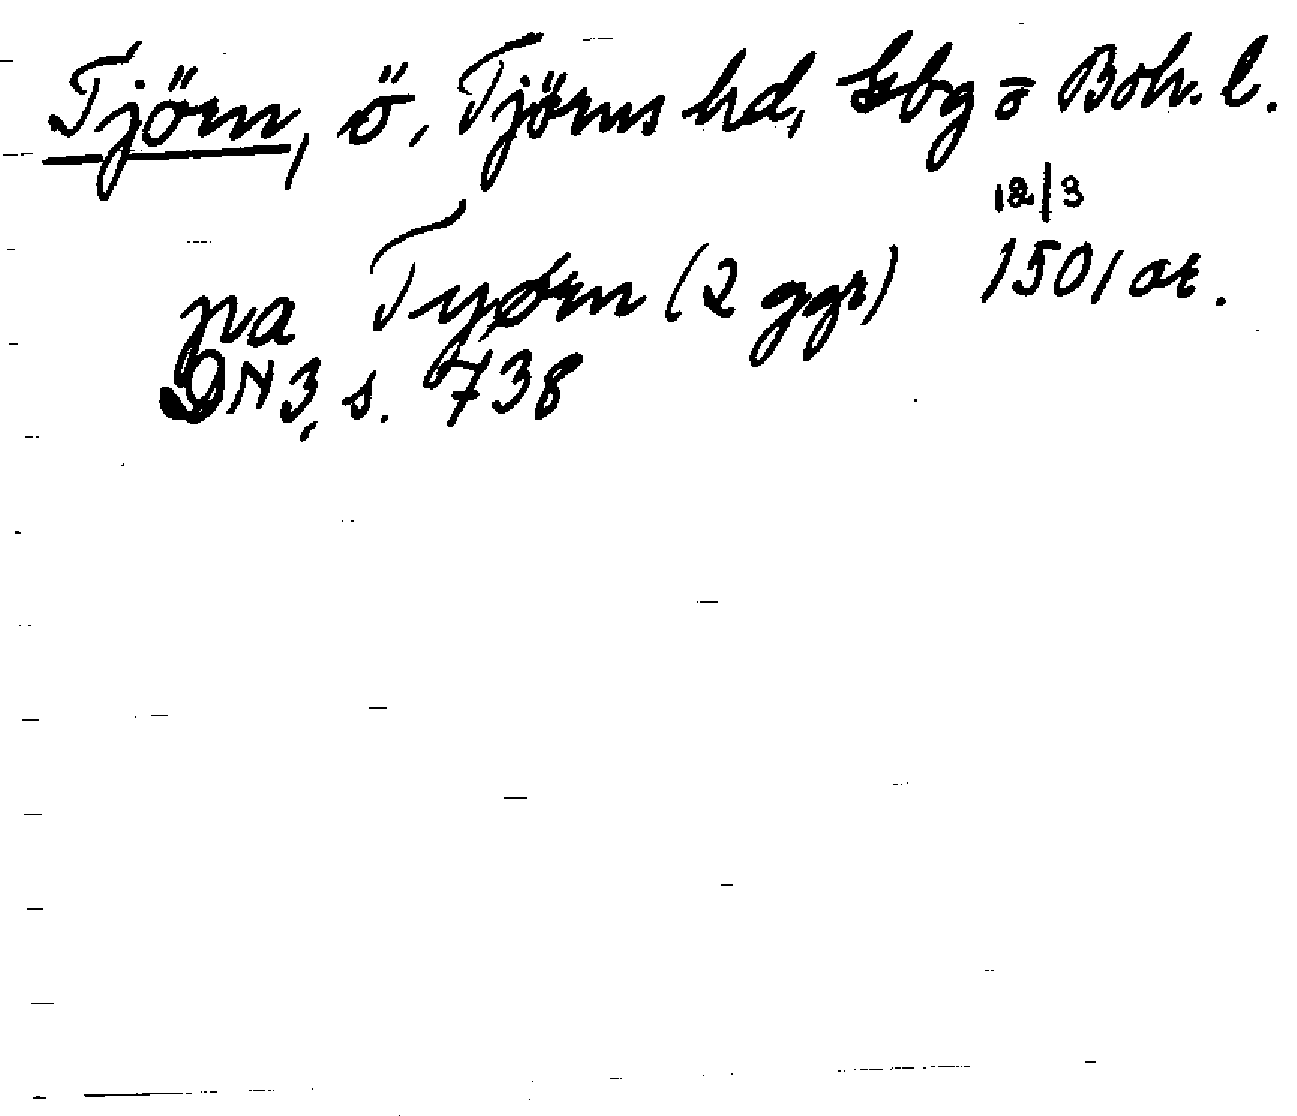 Tjörn, ö, Tjörns hd, Gbg o Boh. l.
12/3
pa Tyørn (2 ggr) 1501 or.
DN 3, s. 738